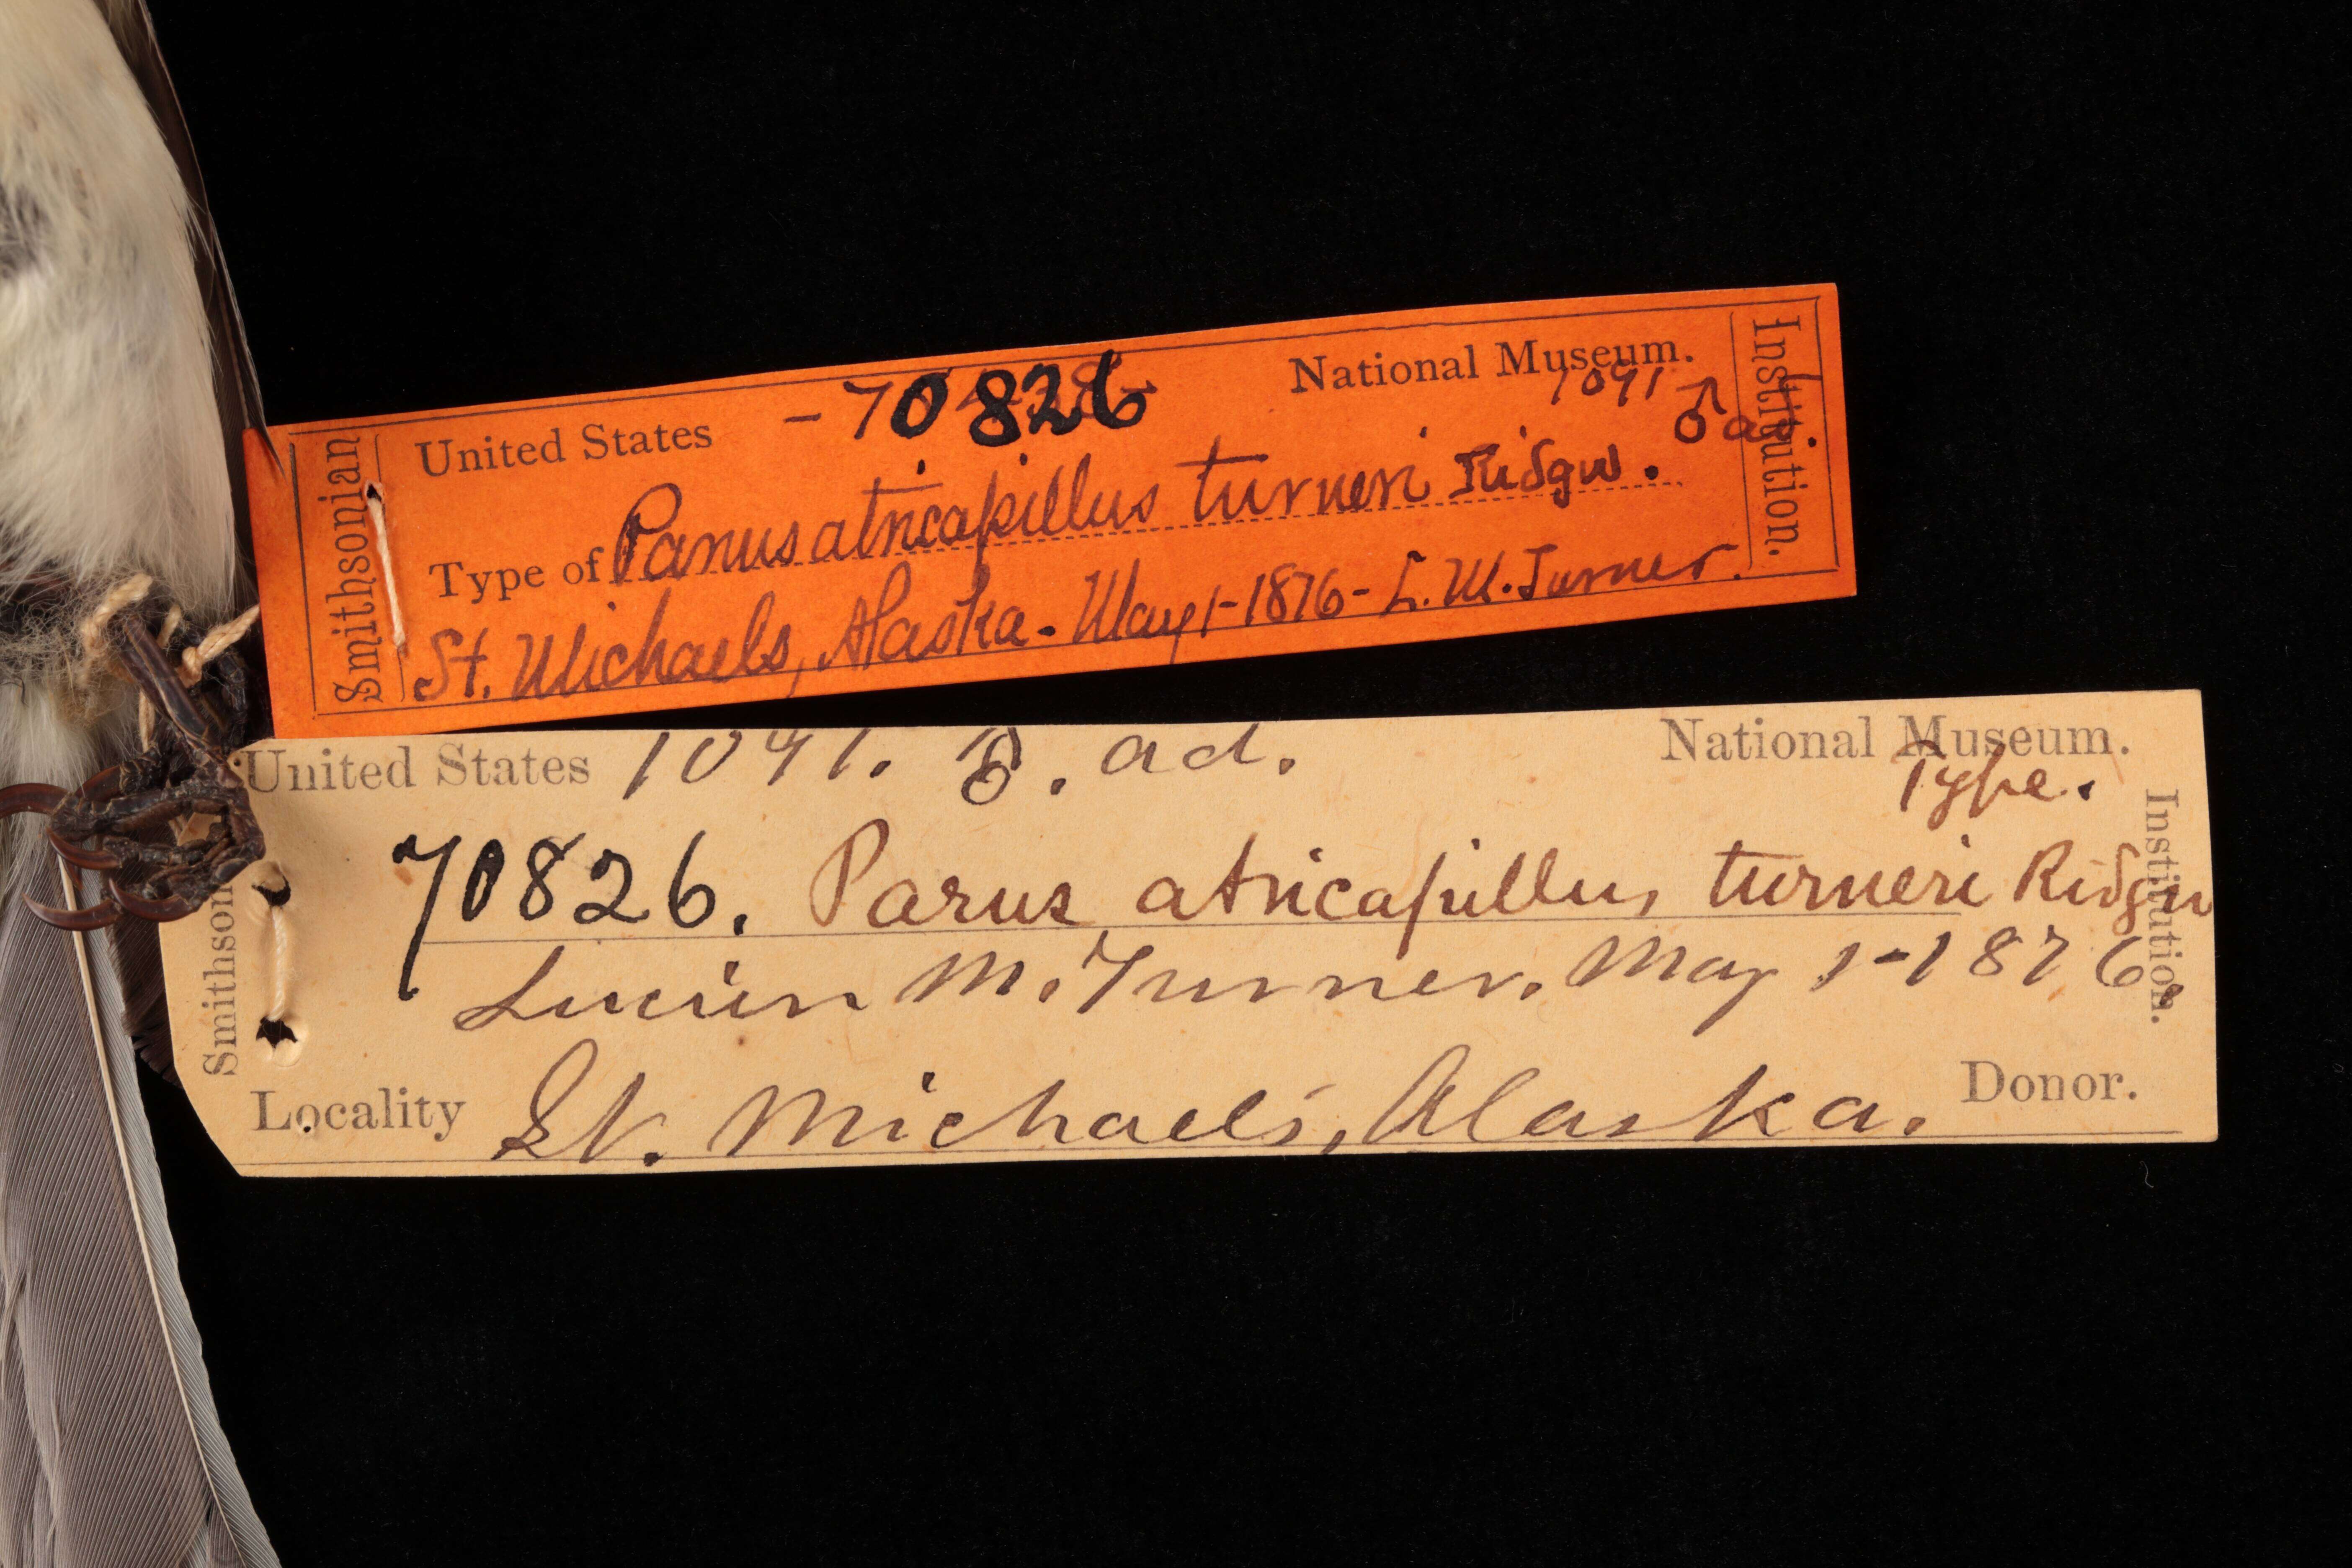 United States -70826 National Museum.
1091 ♂ ad.
Type of Parus atricapillus turneri Ridgw.
St. Michaels, Alaska - May 1-1876- L. M. Turner.
Smithsonian
Institution.
United States 1091. ♂. ad. National Museum.
Type.
70826. Parus atricapillus turneri Ridgw
Lucien M. Turner. May 1-1876.
Locality St. Michaels, Alaska. Donor.
Smithson
Institution.